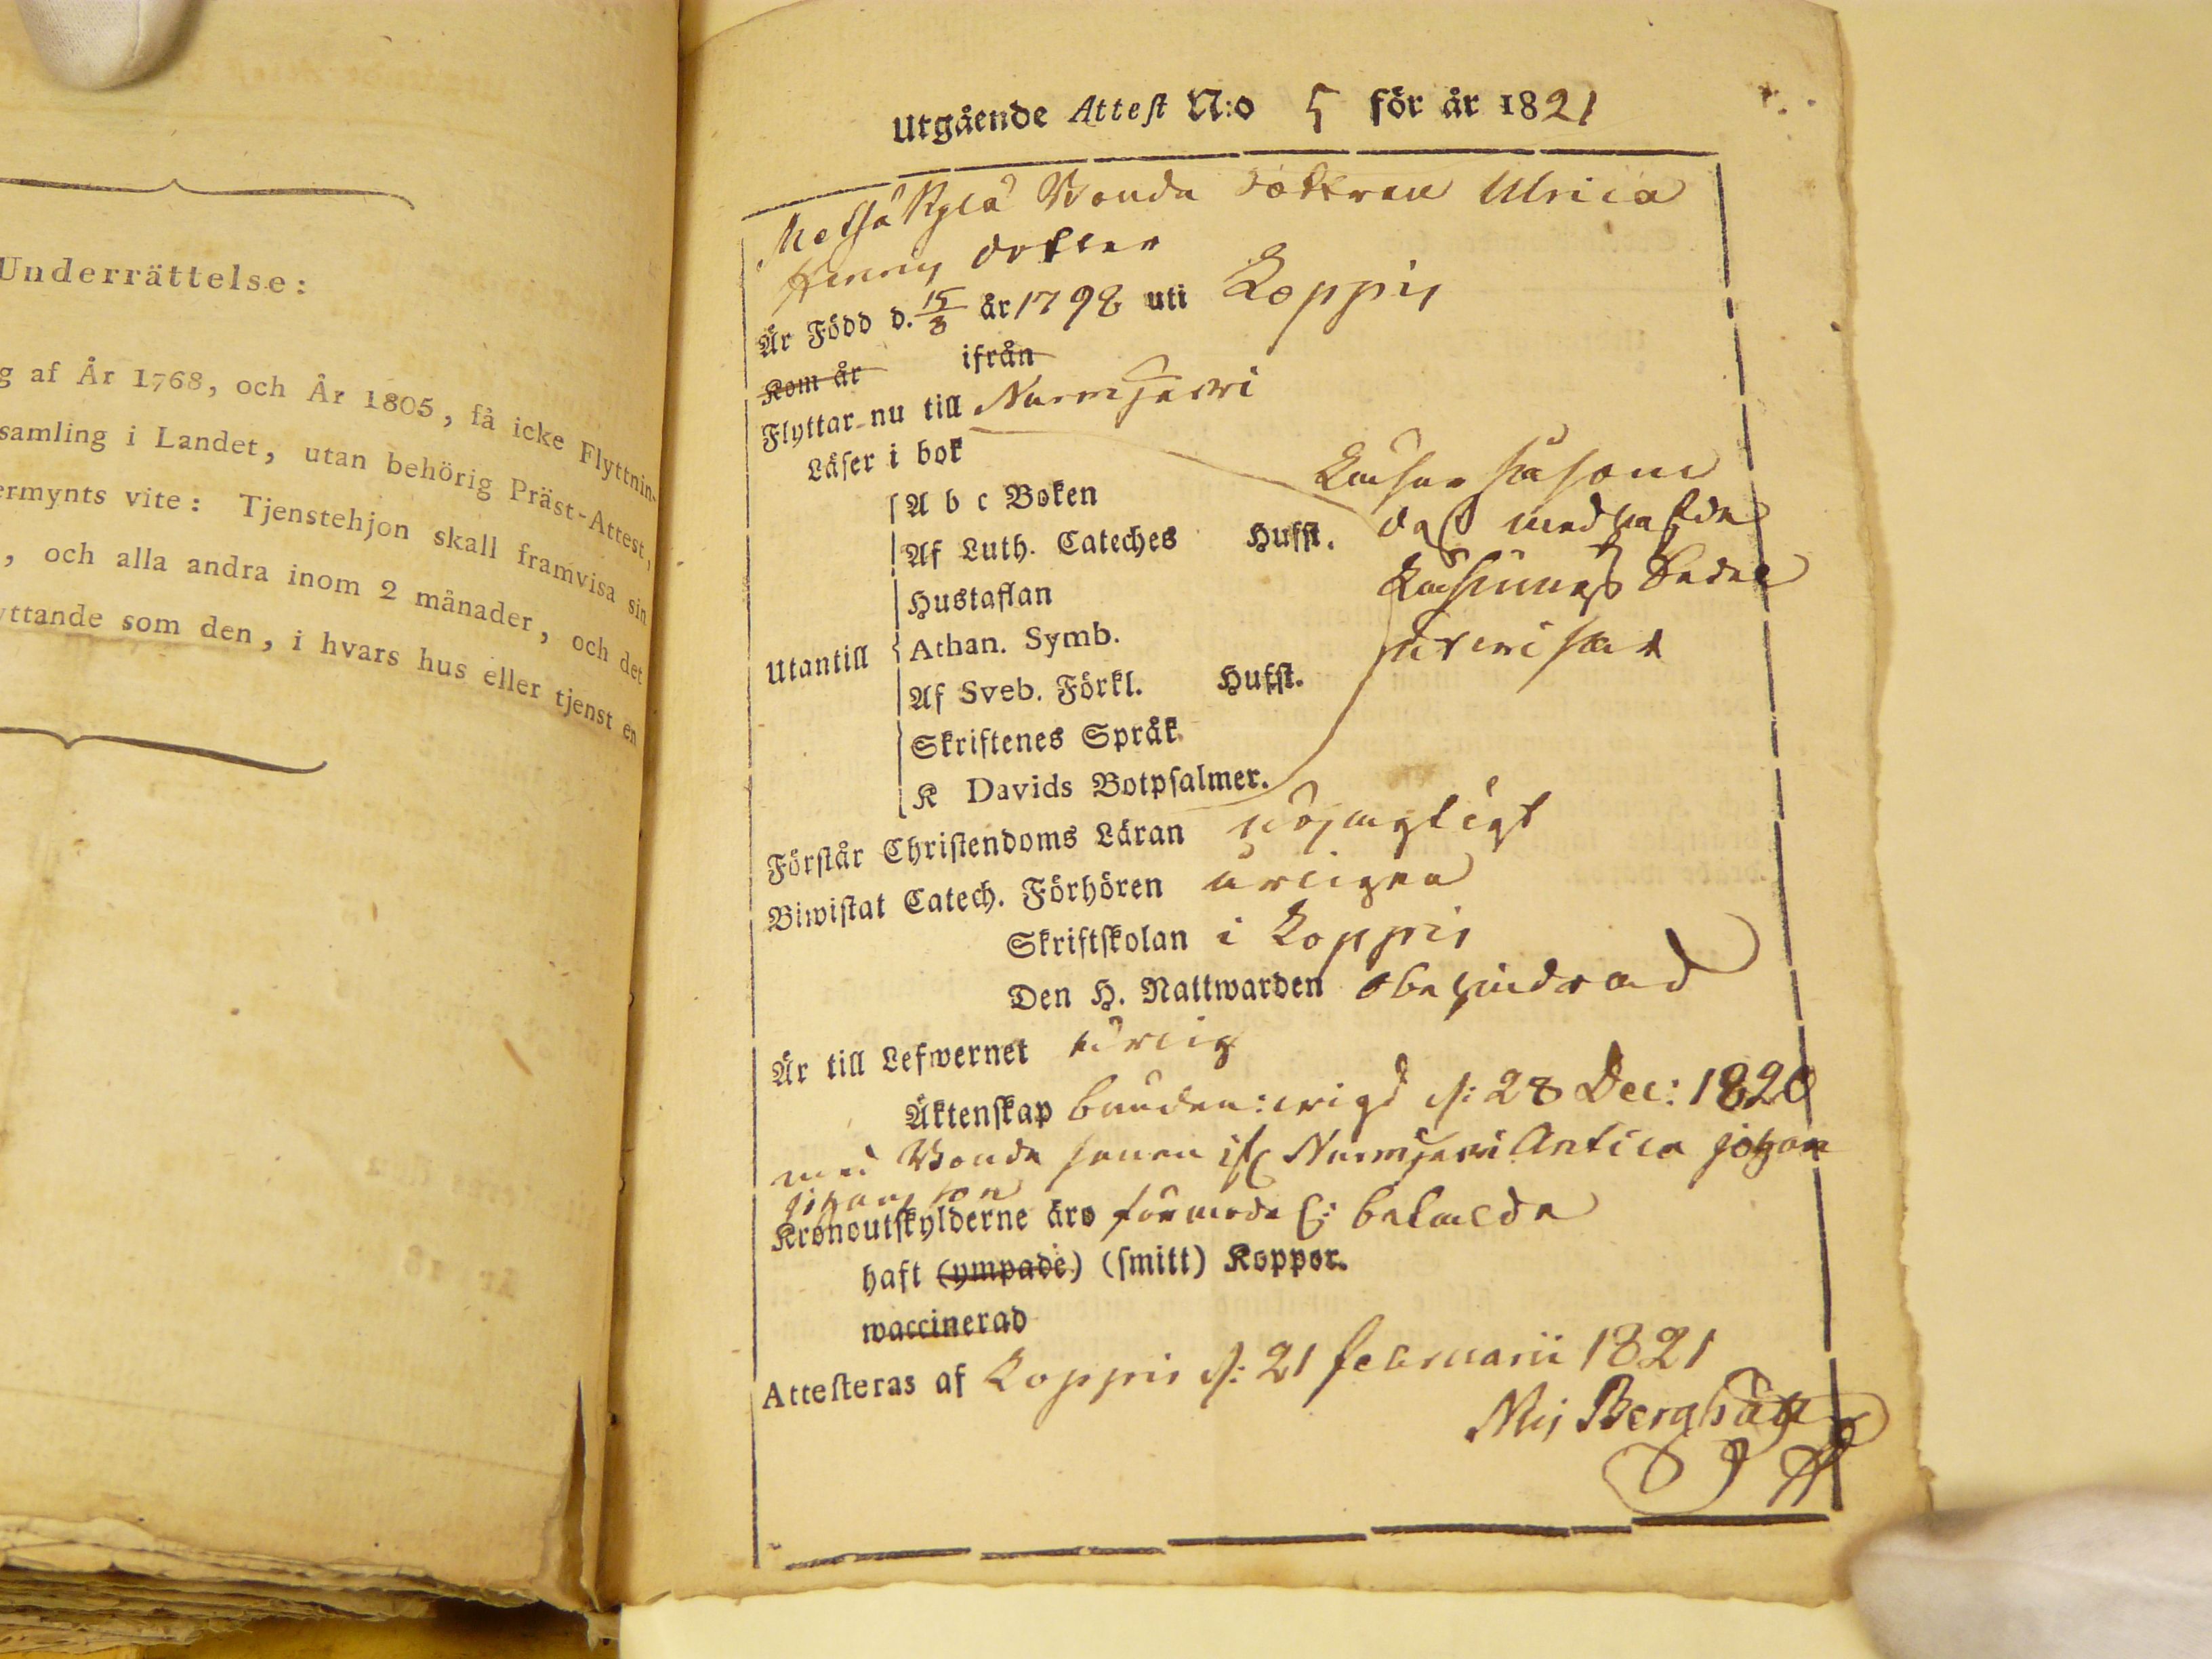 Underrättelse:
g af År 1768, och År 1805, få icke Flyttnin-
samling i Landet, utan behörig Präst-Attest,
ermynts vite: Tjenstehjon skall framvisa sin
, och alla andra inom 2 månader, och det
yttande som den, i hvars hus eller tjenst en
Utgående Attest N:o 5 för år 1821
Metsäkylä Bonde dottren Ulrica
Henrics dotter
Är Född d. 15/3 år 1798 uti Loppis
Kom år ifrån
Flyttar nu till Nurmjerwi
Läser i bok
A b c Boken
Af Luth. Cateches Hufst.
Hustaflan
Utantill Athan. Symb.
Af Sveb. Förkl. Hufst.
Skriftenes Språk
K Davids Botpsalmer.
Läser såsom
des medhafde
Läsnings Sedel
utwisar
Förstår Christendoms Läran nöjagtigt
Biwistat Catech. Förhören årligen
Skriftskolan i Loppis
Den H. Nattwarden obehindrad
Är till Lefwernet ärlig
Äktenskap bunden: wigd d: 28 Dec: 1820
med Bonde sonen ifr Nurmjerwi Antila Johan
Johansson
Kronoutskylderne äro betalde
haft (ympade) (smitt) Koppor.
waccinerad
Attesteras af Loppis d: 21 Februarii 1821
Nils Bergh